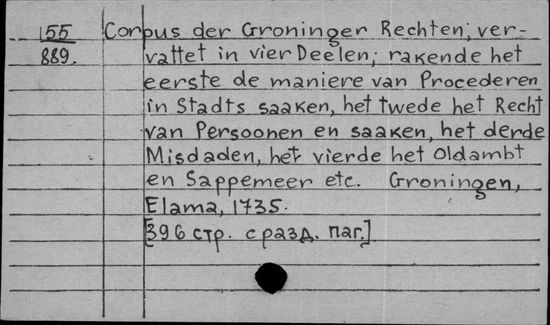 155 Corpus der Groninger Rechten; ver-
889. vattet in vier Deelen; rakende het
eerste de maniere van Procederen
in Stadts saaken, het twede het Recht
van Persoonen en saaken, het derde
Misdaden, het vierde het Oldambt
en Sappemeer etc. Groningen,
Elama, 1735.
[396 стр. с разд. паг.]